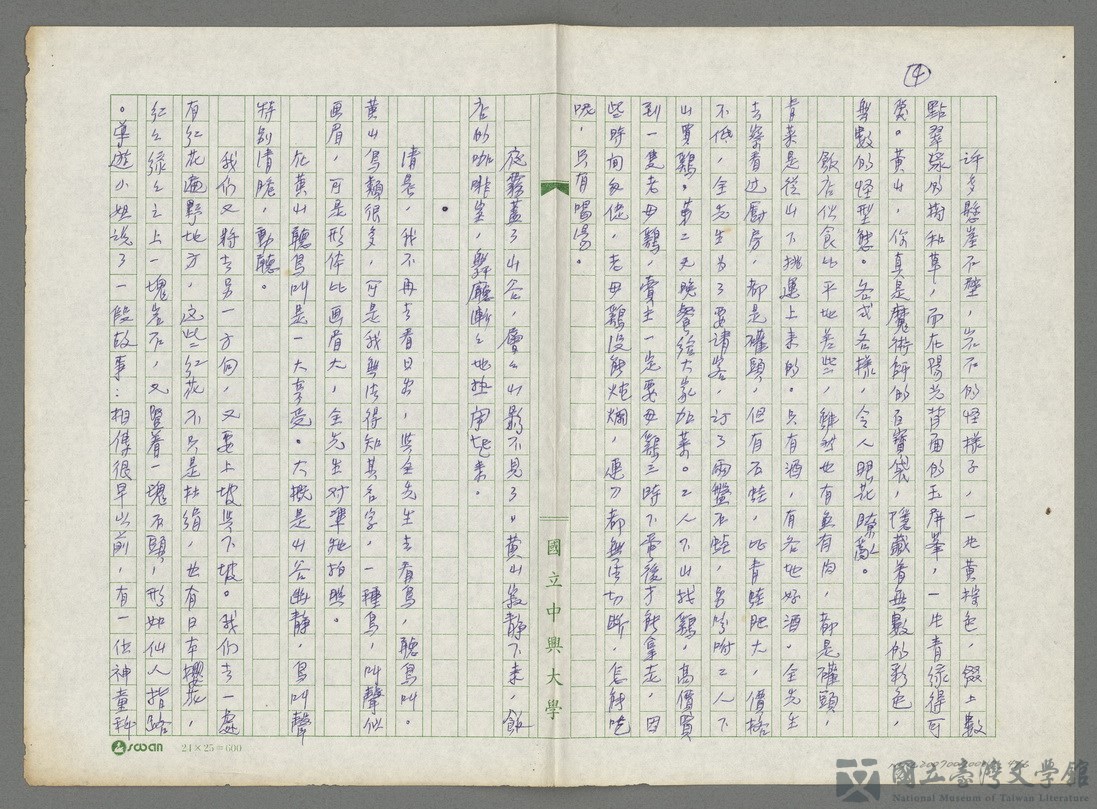 ④
許多懸崖石壁，岩石的怪樣子，一半黃褐色，綴上數
點翠綠的樹和草，而在陽光背面的玉屏峯，一片青綠得可
愛。黃山，你真是魔術師的百寶袋，隱藏着無數的彩色，
無數的怪型態。各式各樣，令人眼花瞭亂。
飯店伙食比平地差些，雖然也有魚有肉，都是罐頭，
青菜是從山下挑運上來的。只有酒，有各地好酒。全先生
去察看过廚房，都是罐頭，但有石蛙，比青蛙肥大，價格
不低，全先生为了要請客，訂了兩盤石蛙，另吩咐工人下
山買鷄。第二天晚餐給大家加菜。工人下山找鷄，高價買
到一隻老母鷄，賣主一定要母鷄三時下蛋後才能拿走，因
些時间匆促，老母鷄没能炖爛，連刀都無法切断，怎能吃
呢，只有喝湯。
夜霧蓋了山谷，層々山影不見了。黃山寂静下来，飯
店的咖啡室，舞廳漸々地热闹起来。
清晨，我不再去看日出，與全先生去看鳥，聽鳥叫。
黃山鳥類很多，可是我無法得知其名字，一種鳥，叫聲似
画眉，可是形体比画眉大，全先生对準牠拍照。
在黃山聽鳥叫是一大享受。大概是山谷幽静，鳥叫聲
特别清脆，動聽。
我们又將去另一方向，又要上坡與下坡。我们去一處
有红花遍野地方，这些红花不只是杜鵑，也有日本櫻花，
红々綠々之上一塊岩石，又豎着一塊石頭，形如仙人指路
。導遊小姐説了一段故事：相傳很早以前，有一位神童科
國立中興大學
swan 24×25=600
國立臺灣文學館
National Museum of Taiwan Literature